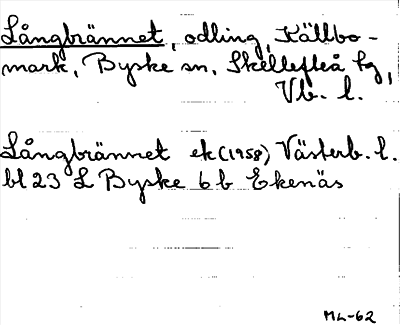 Långbrännet, odling, Källbo-
mark, Byske sn, Skellefteå tg,
Vb. l.
Långbrännet ek (1958) Västerb. l.
bl 23 L Byske 6b Ekenäs
ML-62